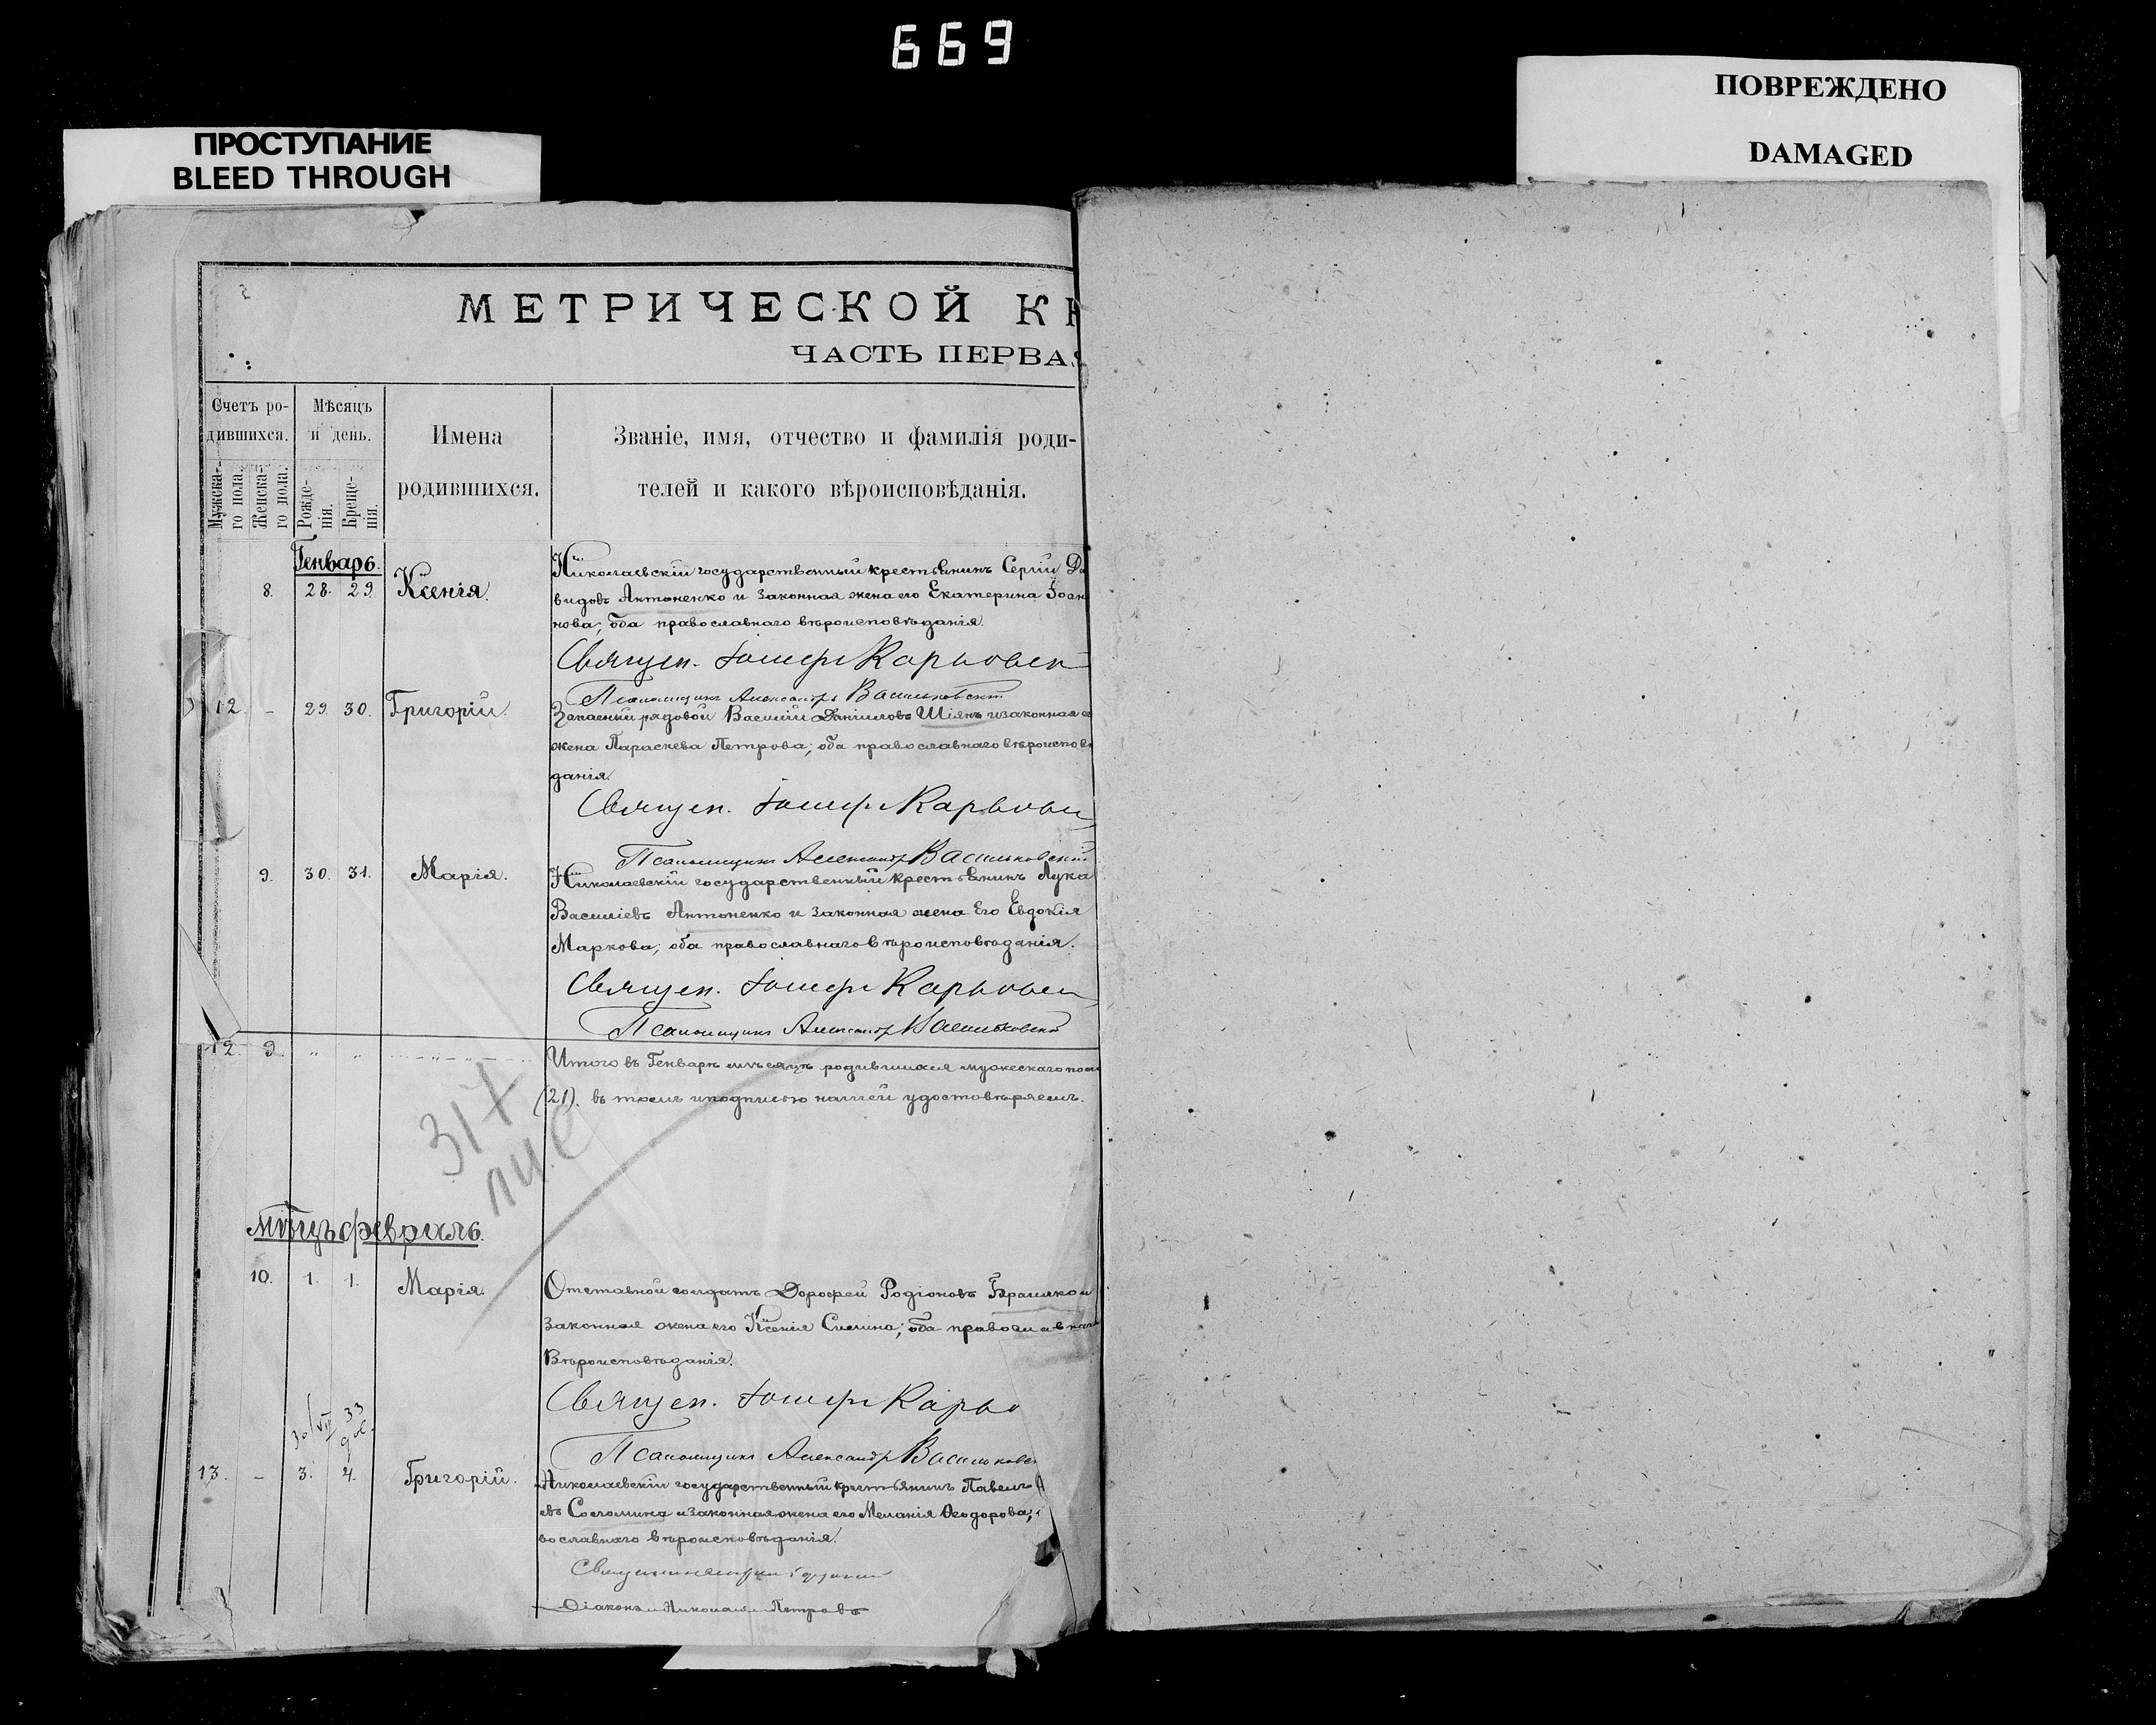 669
ПРОСТУПАНИЕ
BLEED THROUGH
ПОВРЕЖДЕНО
DAMAGED
МЕТРИЧЕСКОЙ КН
ЧАСТЬ ПЕРВАЯ
Счетъ ро-
дившихся.
Мужска-
го пола.
Женска-
го пола.
Мѣсяцъ
и день.
Рожде-
нія.
Креще-
нія.
Имена
родившихся.
Званіе, имя, отчество и фамилія роди-
телей и какого вѣроисповѣданія.
Генварь.
8. 28. 29. Ксенія.
Николаевскій государственный крестьянинъ Сергій Да
видовъ Антоненко и законная жена его Екатерина Іоан
нова; оба православнаго вѣроисповѣданія.
Священ. Іосиф
Псаломщикъ Александръ Васильковскій
12. – 29. 30. Григорій.
Запасный рядовой Василій Даніиловъ Шіянъ и законная ег
жена Параскева Петрова; оба православнаго вѣроисповѣ
данія.
Священ. Іосиф
Псаломщикъ Александръ Васильковскій
9. 30. 31. Марія.
Николаевскій государственный крестьянинъ Лука
Василіевъ Антоненко и законная жена его Евдокія
Маркова; оба православнаго вѣроисповѣданія.
Священ. Іосиф
Псаломщикъ Александръ Васильковскій
12. 9. " "
Итого въ Генварѣ мѣсяцѣ родившихся мужескаго пола
(21). въ томъ и подписью нашей удостовѣряемъ.
317
лис
мѣцъ февраль.
10. 1. 1. Марія.
Отставной солдатъ Дорофей Родіоновъ и
законная жена его Ксенія Симина; оба православнаго
вѣроисповѣданія.
Священ. Іосиф
Псаломщикъ Александръ Васильковс
30/VII 33
13. – 3. 4. Григорій.
Николаевскій государственный крестьянинъ Павелъ
евъ и законная жена его Меланія Ѳеодорова;
вославнаго вѣроисповѣданія.
Діаконъ Николай Петровъ